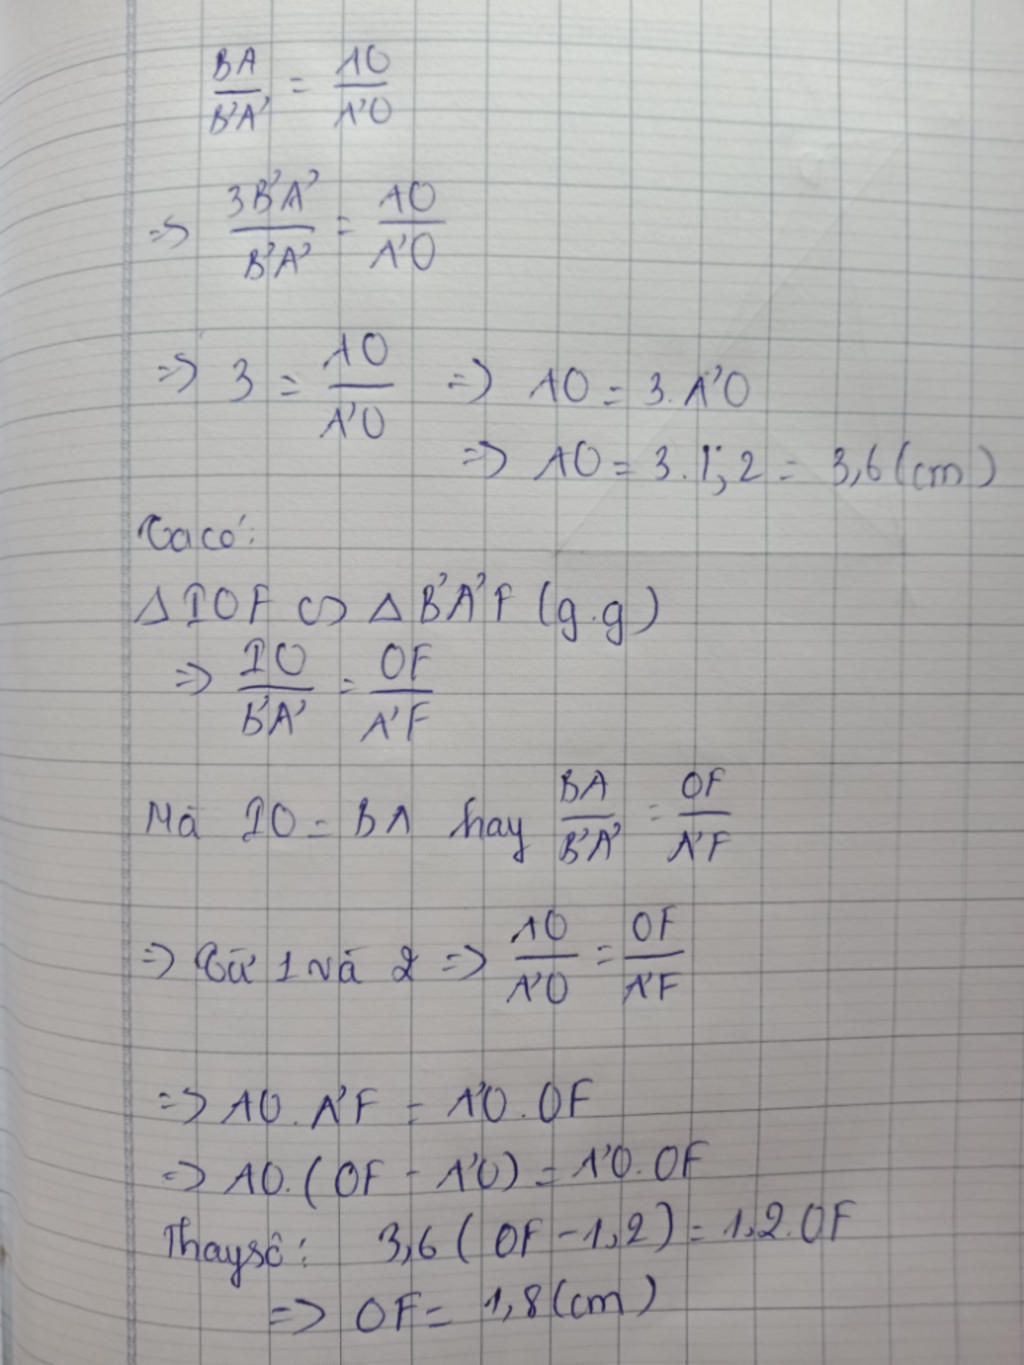 BA/B'A' = AO/A'O
=> 3B'A'/B'A' = AO/A'O
=> 3 = AO/A'O => AO = 3.A'O
=> AO = 3.1,2 = 3,6 (cm)
Ta có:
△IOF ∽ △B'A'F (g.g)
=> IO/B'A' = OF/A'F
Mà IO = BA hay BA/B'A' = OF/A'F
=> Từ 1 và 2 => AO/A'O = OF/A'F
=> AO.A'F = A'O.OF
=> AO.(OF - A'O) = A'O.OF
Thay số: 3,6 (OF - 1,2) = 1,2.OF
=> OF = 1,8 (cm)